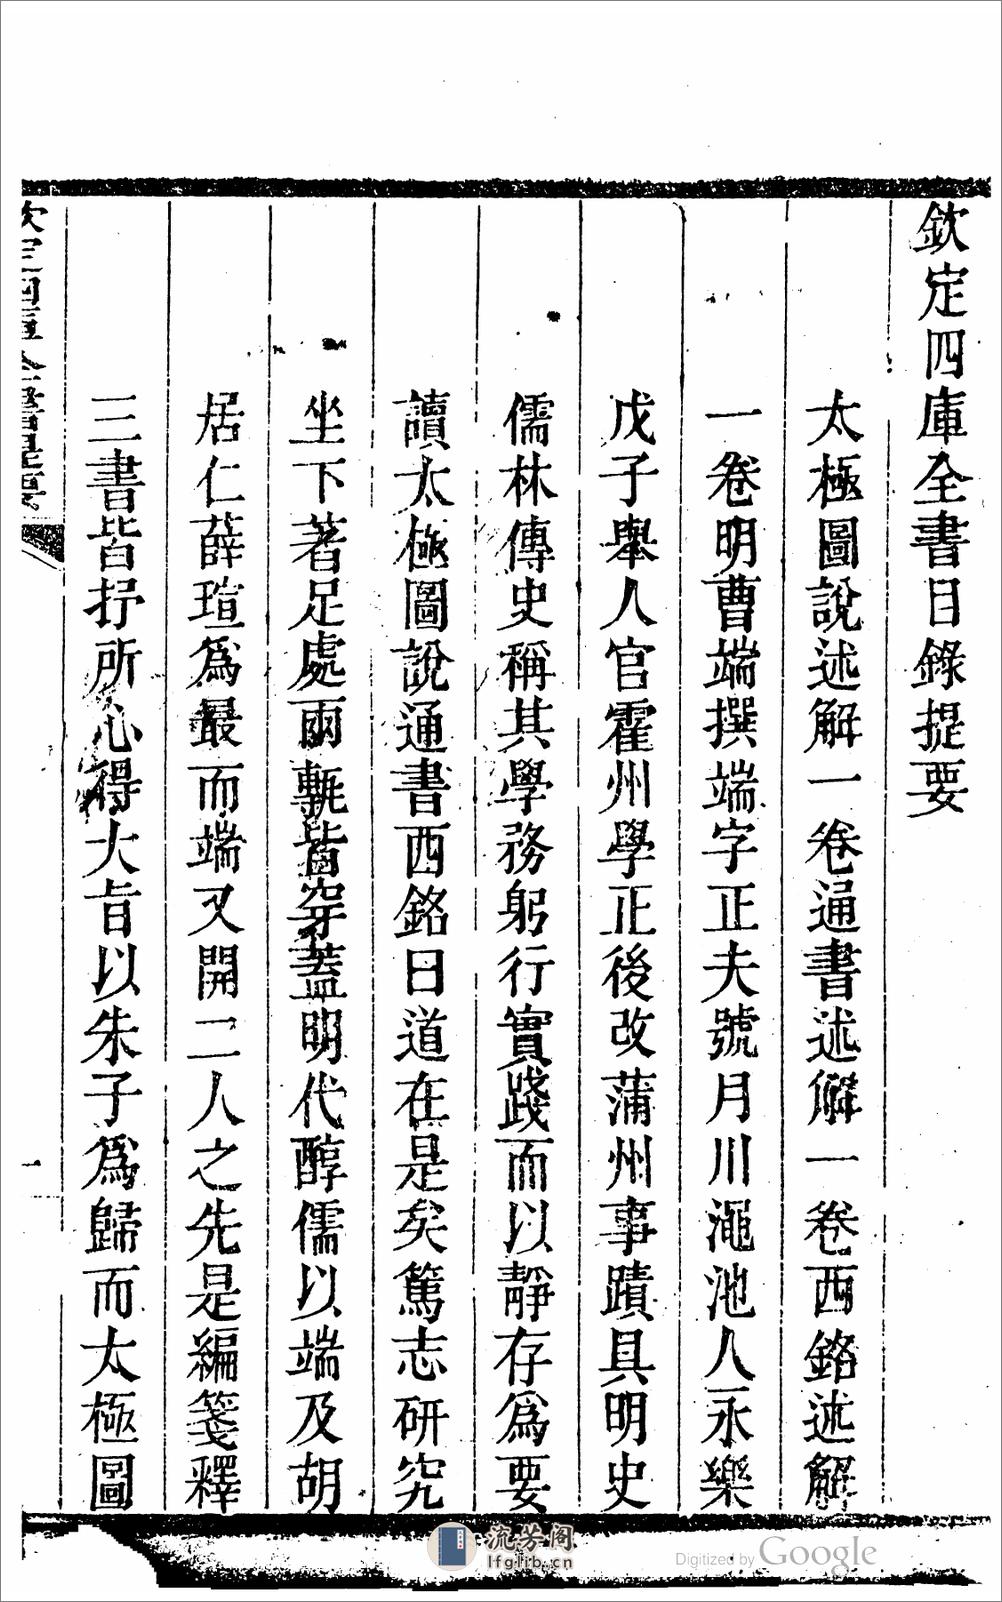 欽定四庫全書目錄提要
太極圖說述解一卷通書述解一卷西銘述解
一卷明曹端撰端字正夫號月川澠池人永樂
戊子舉人官霍州學正後改蒲州事蹟具明史
儒林傳史稱其學務躬行實踐而以靜存為要
讀太極圖說通書西銘曰道在是矣篤志研究
坐下著足處兩甎皆穿蓋明代醇儒以端及胡
居仁薛瑄為最而端又開二人之先是編箋釋
三書皆抒所心得大旨以朱子為歸而太極圖
欽定四庫全書提要
一
流芳阁
lfglib.cn
Digitized by Google